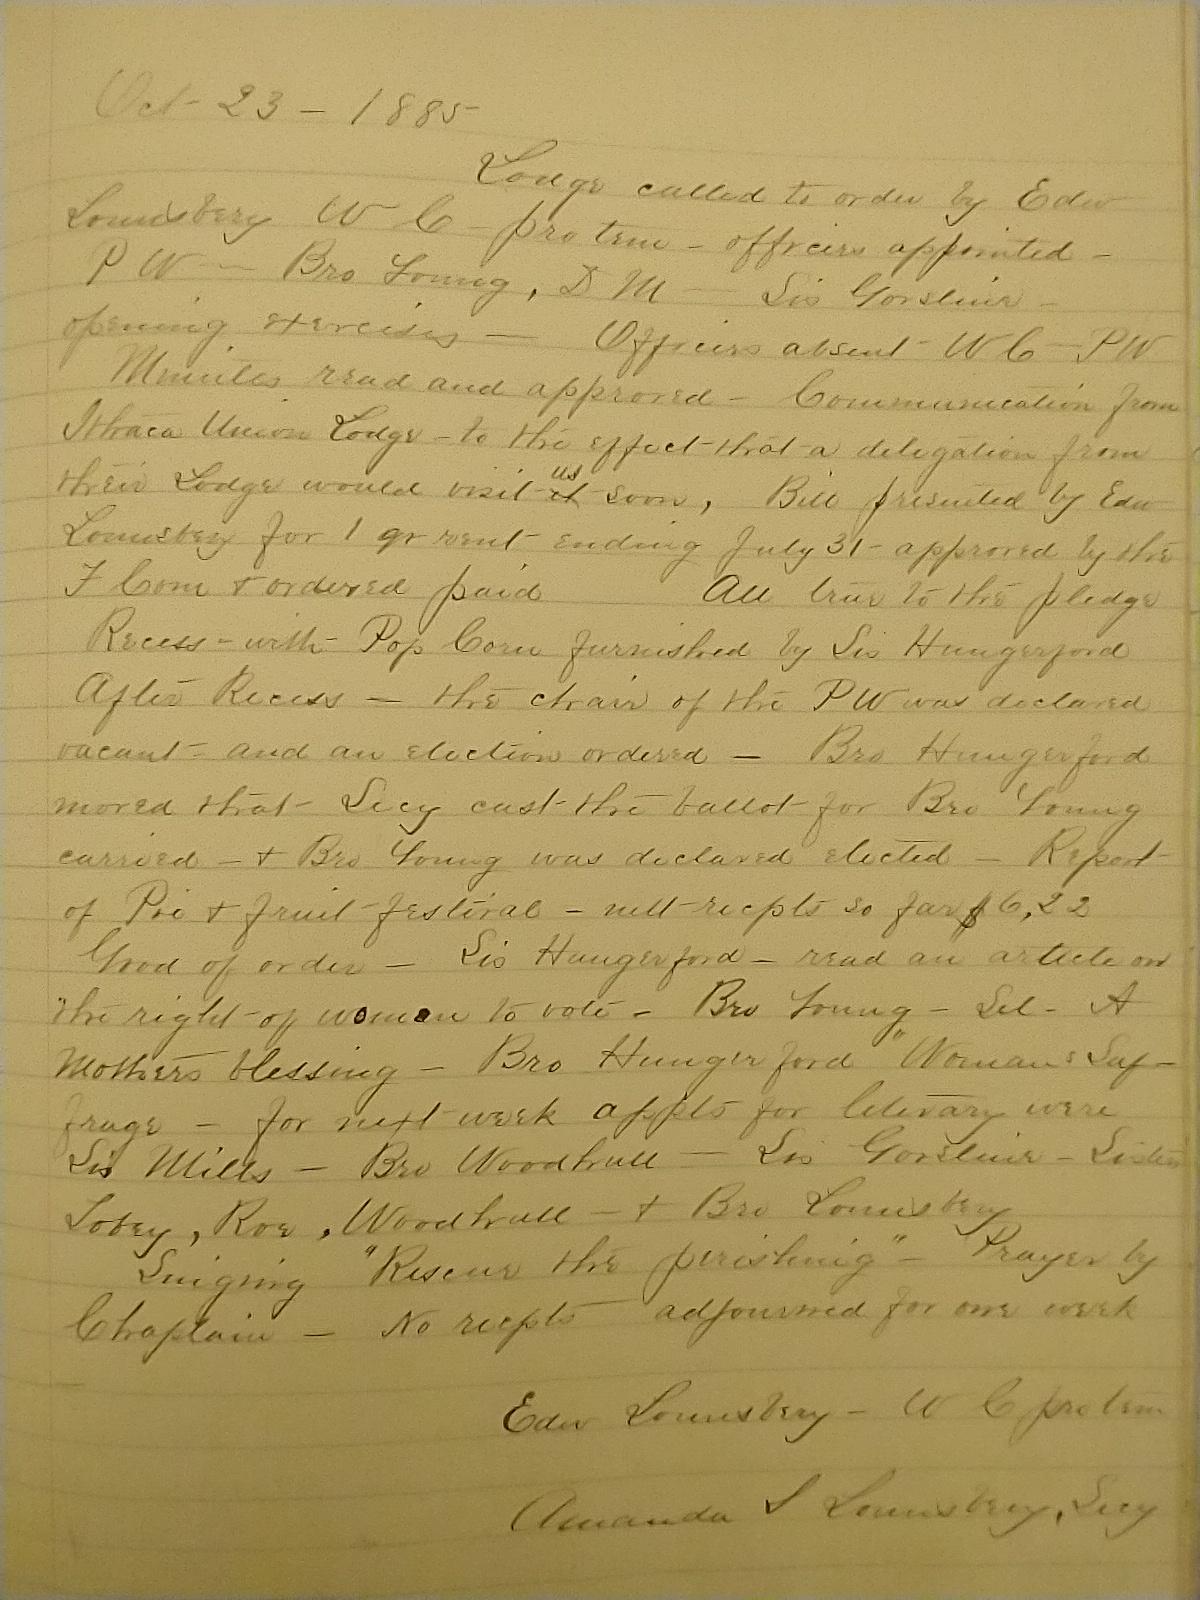 Oct 23 - 1885
Lodge called to order by Edw
Lounsbery W C protem - officers appointed -
P W - Bro Young, D M - Sis Gorsline -
opening exercises - Officers absent W C - PW
Minutes read and approved - Communication from
Ithaca Union Lodge - to the effect that a delegation from
their Lodge would visit us soon, Bill presented by Edw
Lounsbery for 1 qr rent ending July 31 - approved by the
F Com & ordered paid All true to the pledge
Recess - with Pop Corn furnished by Sis Hungerford
After Recess - the chair of the PW was declared
vacant - and an election ordered - Bro Hungerford
moved that Secy cast the ballot for Bro Young
carried - & Bro Young was declared elected - Report
of Pie & fruit festival - nett recpts so far $6,22
Good of order - Sis Hungerford - read an article on
the right of women to vote - Bro Young - Sel - A
Mothers blessing - Bro Hungerford "Womans Suf-
frage - for next week appts for literary were
Sis Mills - Bro Woodhull - Sis Gorsline - Sisters
Tobey, Roe, Woodhull - & Bro Lounsbery
Singing "Rescue the perishing" - Prayer by
Chaplain - No recpts adjourned for one week
Edw Lounsbery - W C protem
Amanda S Lounsbery, Secy